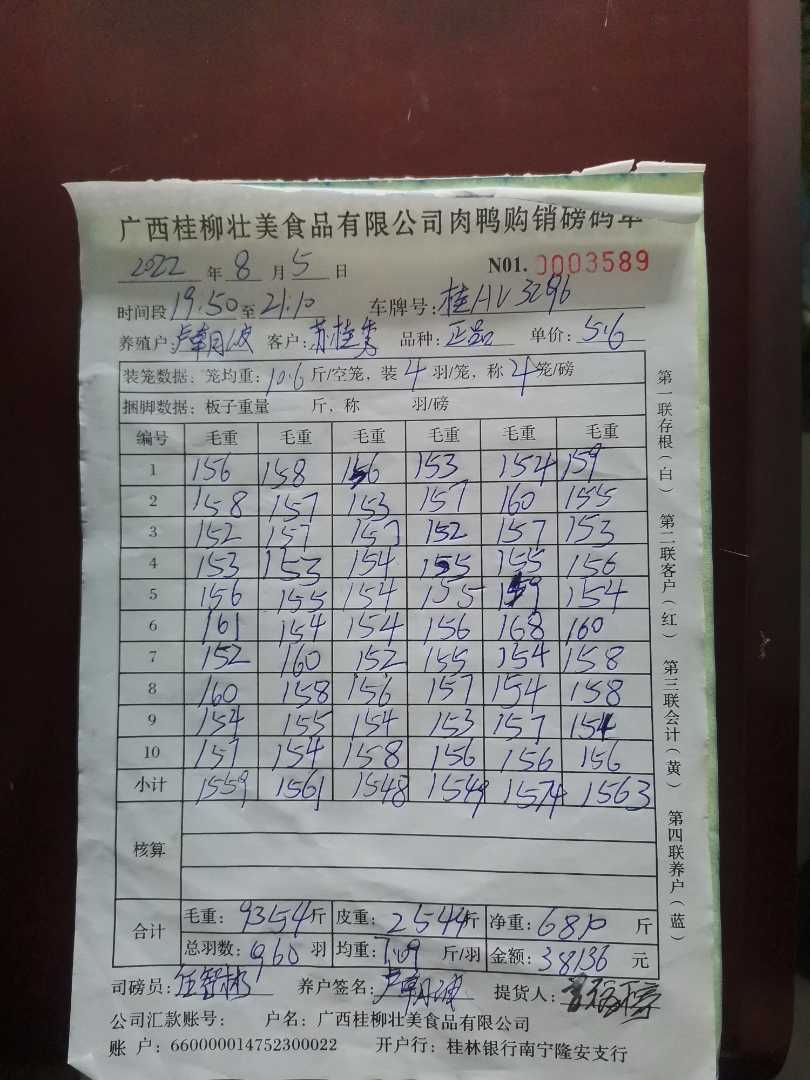 广西桂柳壮美食品有限公司肉鸭购销磅码单
2022 年 8 月 5 日 N01. 0003589
时间段 19.50 至 21.10 车牌号: 桂AV3296
养殖户: 卢朝波 客户: 苏桂秀 品种: 正品 单价: 5.6
装笼数据: 笼均重: 10.6 斤/空笼, 装 4 羽/笼, 称 4 笼/磅
捆脚数据: 板子重量 斤, 称 羽/磅
编号 毛重 毛重 毛重 毛重 毛重 毛重
1 156 158 156 153 154 159
2 158 157 153 157 160 155
3 152 157 157 152 157 153
4 153 153 154 155 155 156
5 156 155 154 155 159 154
6 161 154 154 156 168 160
7 152 160 152 155 154 158
8 160 158 156 157 154 158
9 154 155 154 153 157 154
10 157 154 158 156 156 156
小计 1559 1561 1548 1549 1574 1563
核算
合计 毛重: 9354 斤 皮重: 2544 斤 净重: 6810 斤
总羽数: 960 羽 均重: 7.09 斤/羽 金额: 38136 元
司磅员: 养户签名: 卢朝波 提货人:
公司汇款账号: 户名: 广西桂柳壮美食品有限公司
账 户: 660000014752300022 开户行: 桂林银行南宁隆安支行
第一联存根(白) 第二联客户(红) 第三联会计(黄) 第四联养户(蓝)